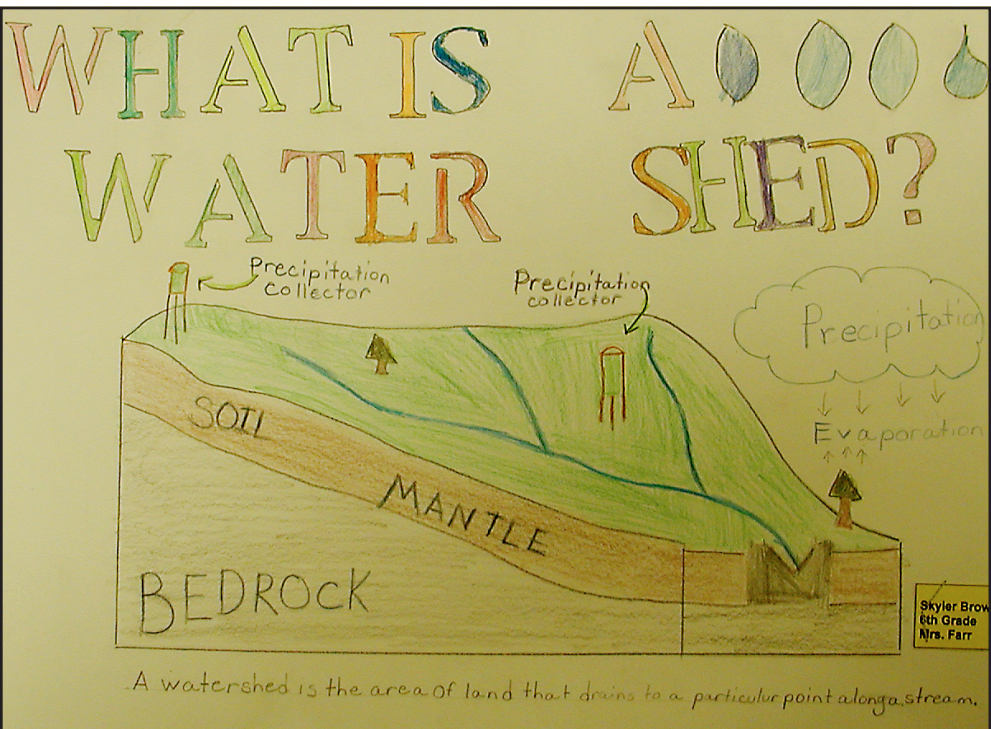 WHAT IS A
WATER SHED?
Precipitation
collector
Precipitation
collector
Precipitation
Evaporation
SOIL
MANTLE
BEDROCK
Skyler Brow
6th Grade
Mrs. Farr
A watershed is the area of land that drains to a particulur point along a stream.